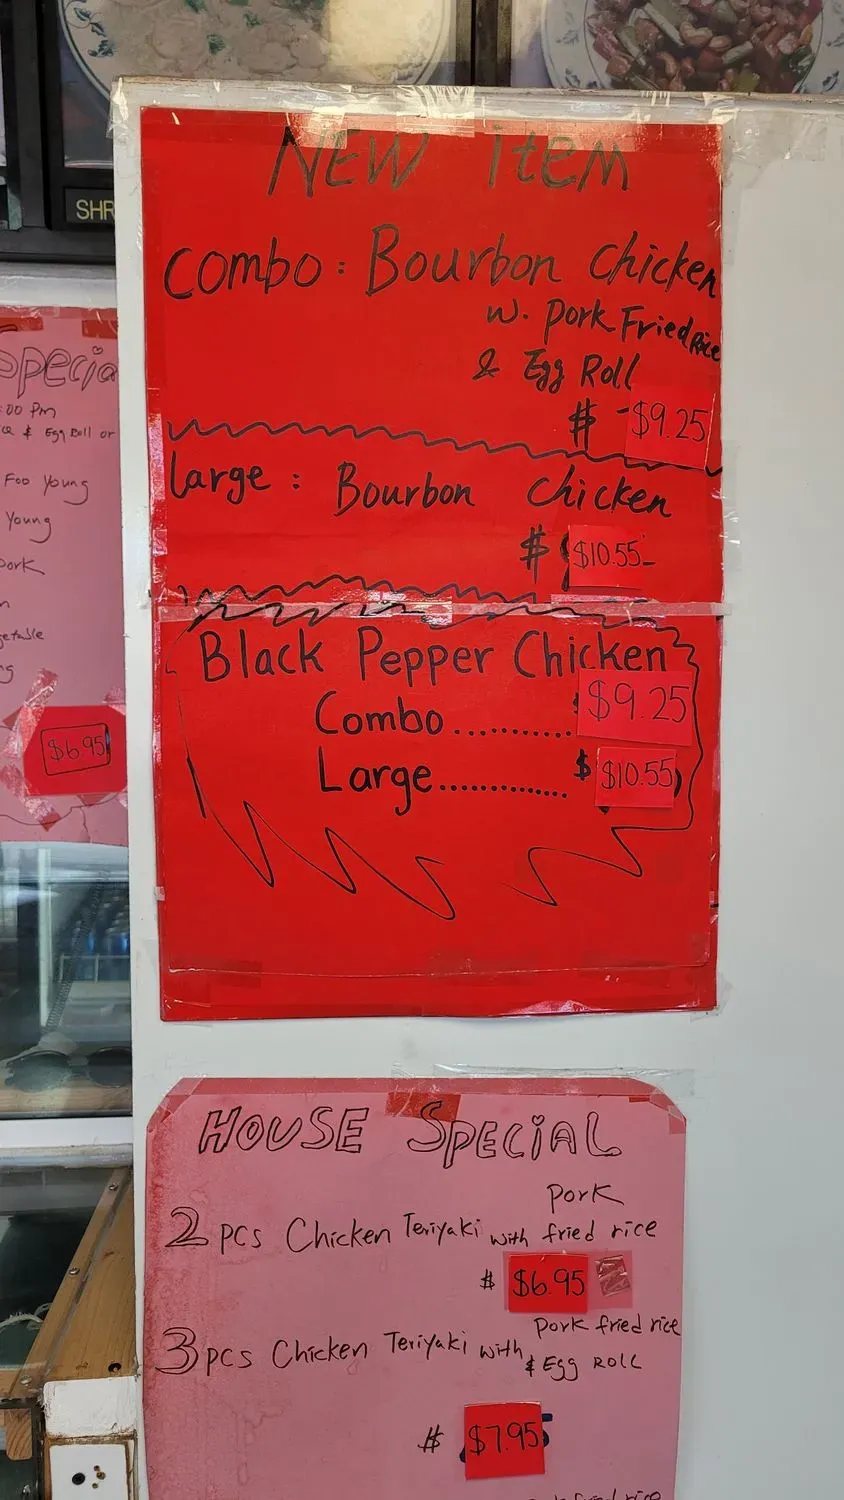 SHR
NEW item
Combo: Bourbon Chicken
w. Pork Fried Rice
& Egg Roll
$ $9.25
Large: Bourbon Chicken
$ $10.55
Black Pepper Chicken
Combo.......... $9.25
Large............. $ $10.55
Special
:00 Pm
& Egg Roll or
Foo Young
Young
Pork
$6.95
HOUSE SPECIAL
Pork
2 pcs Chicken Teriyaki with fried rice
$ $6.95
Pork fried rice
3 pcs Chicken Teriyaki with & Egg ROLL
$ $7.95
fried rice